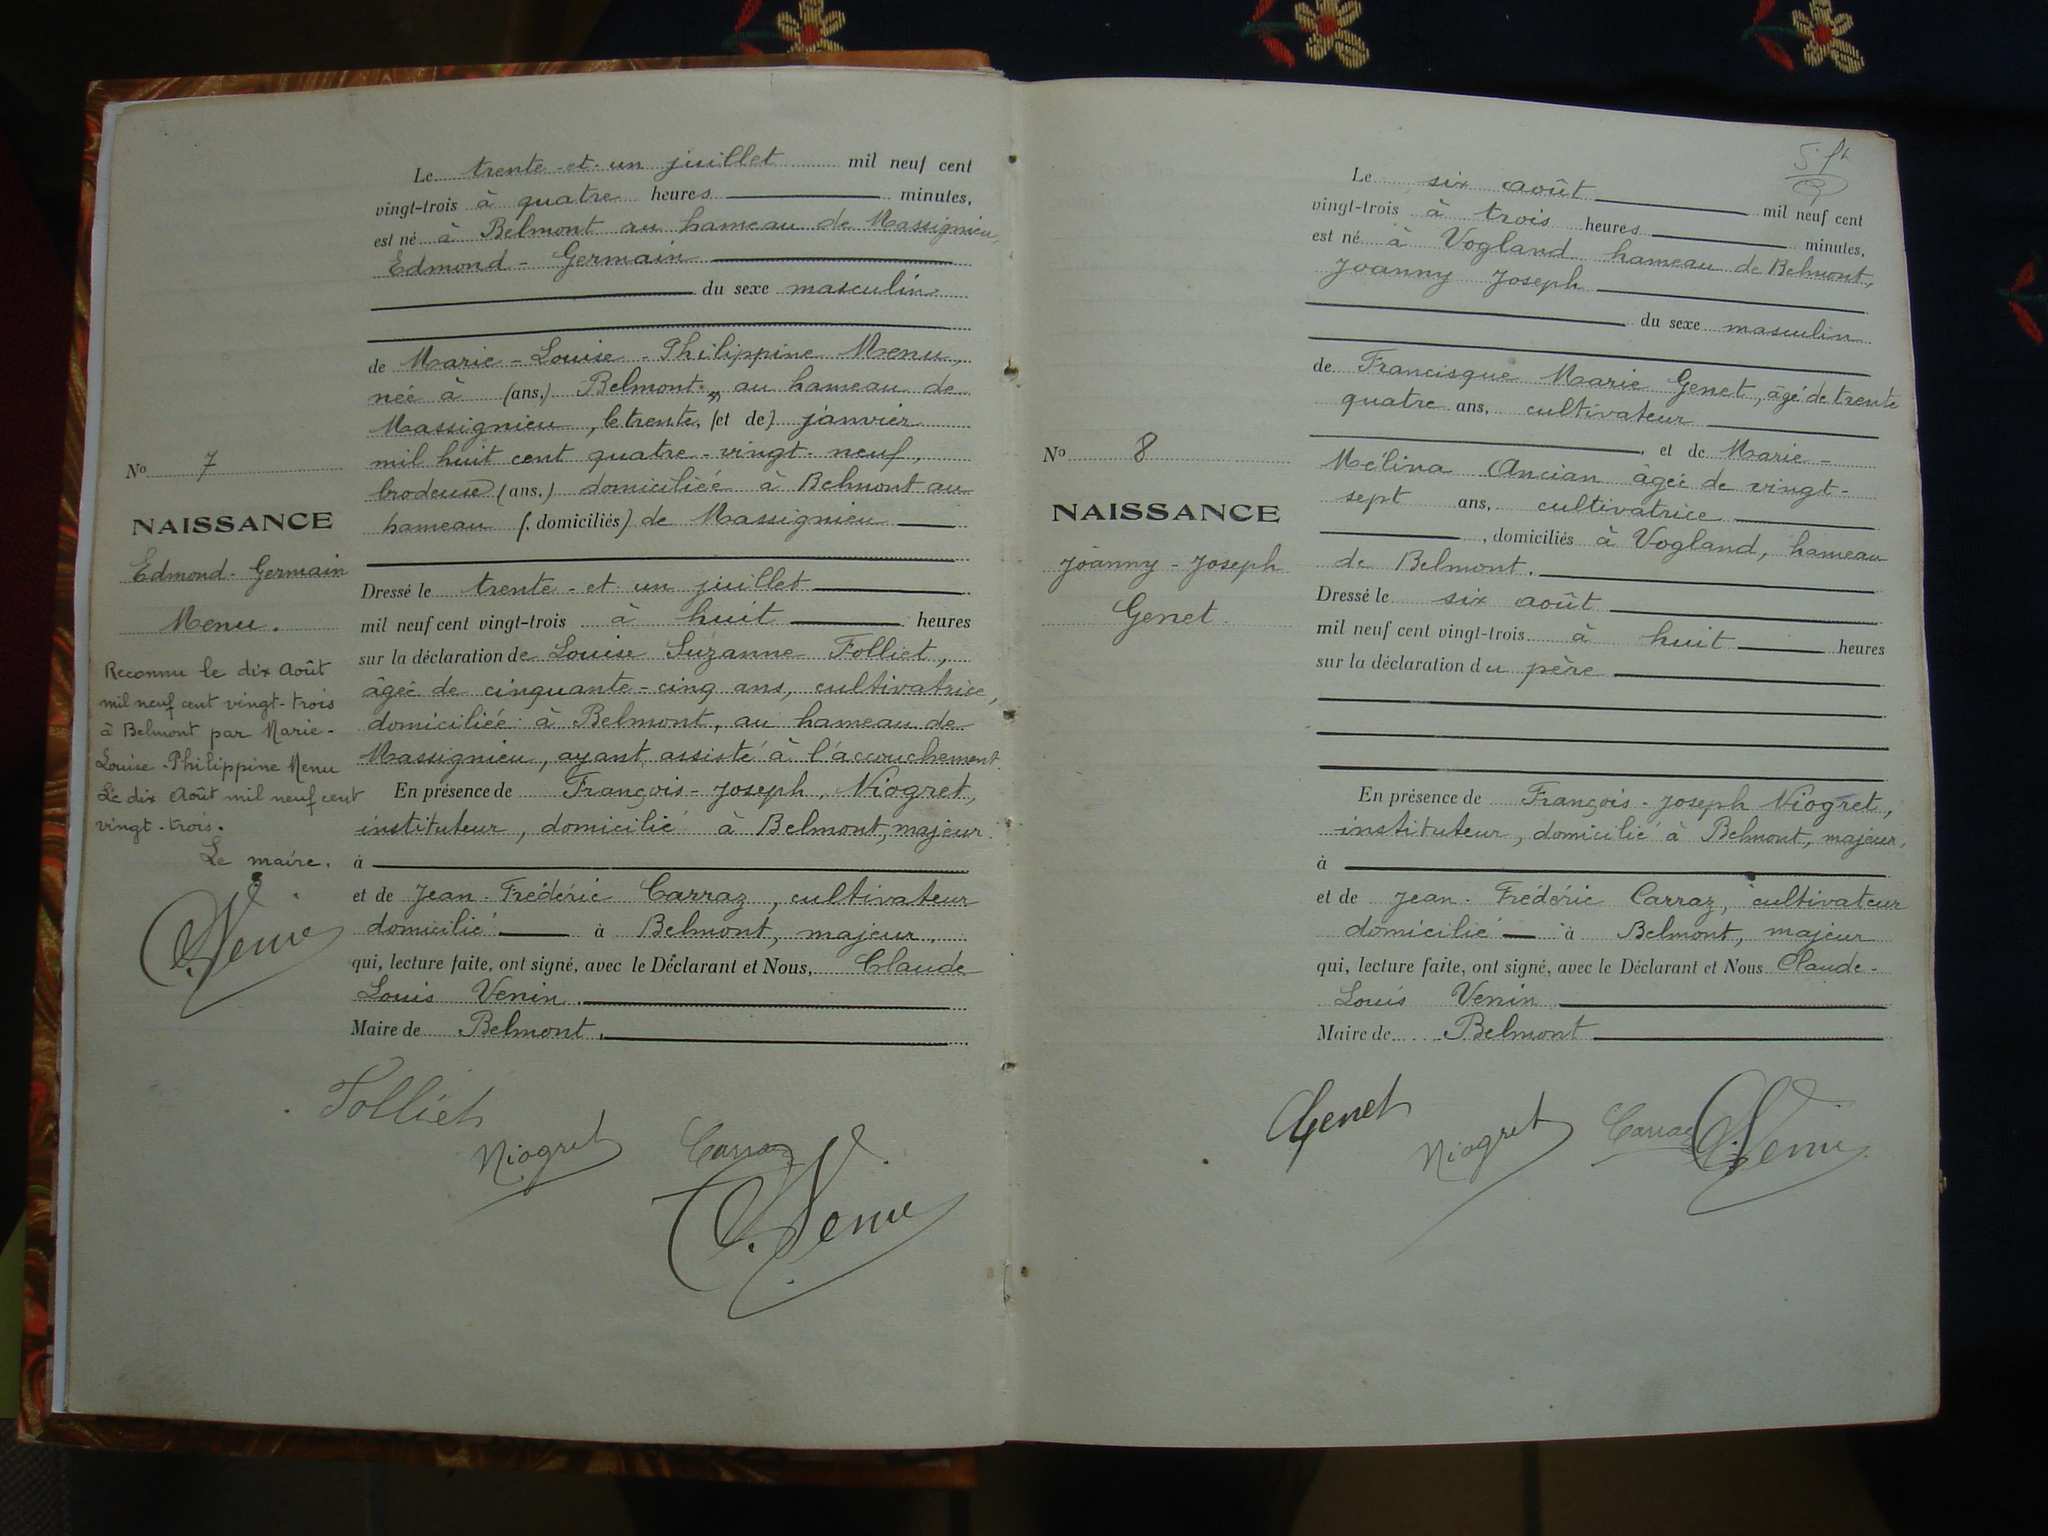 Le trente-et-un juillet mil neuf cent
vingt-trois à quatre heures minutes,
est né à Belmont au hameau de Massignieu,
Edmond-Germain
du sexe masculin
de Marie-Louise-Philippine Menu,
née à (ans,) Belmont, au hameau de
Massignieu, le trente, (et de) janvier
mil huit cent quatre-vingt-neuf,
brodeuse (ans,) domiciliée à Belmont au
hameau (, domiciliés) de Massignieu
Dressé le trente-et un juillet
mil neuf cent vingt-trois à huit heures
sur la déclaration de Louise Suzanne Folliet,
âgée de cinquante-cinq ans, cultivatrice,
domiciliée à Belmont, au hameau de
Massignieu, ayant assisté à l'accouchement.
En présence de François-Joseph, Niogret,
instituteur, domicilié à Belmont, majeur.
à
et de Jean-Frédéric Carraz, cultivateur
domicilié à Belmont, majeur.
qui, lecture faite, ont signé, avec le Déclarant et Nous, Claude
Louis Venin.
Maire de Belmont.
No 7
NAISSANCE
Edmond-Germain
Menu.
Reconnu le dix Août
mil neuf cent vingt-trois
à Belmont par Marie-
Louise-Philippine Menu
Le dix Août mil neuf cent
vingt-trois.
Le maire.
Venin
Folliet
Niogret
Carraz
Venin
Le six août mil neuf cent
vingt-trois à trois heures minutes,
est né à Vogland hameau de Belmont,
Joanny Joseph
du sexe masculin
de Francisque Marie Genet, âgé de trente
quatre ans, cultivateur
, et de Marie-
Mélina Ancian âgée de vingt-
sept ans, cultivatrice
, domiciliés à Vogland, hameau
de Belmont.
Dressé le six août
mil neuf cent vingt-trois à huit heures
sur la déclaration du père
En présence de François-Joseph Niogret,
instituteur, domicilié à Belmont, majeur,
à
et de Jean-Frédéric Carraz, cultivateur
domicilié à Belmont, majeur
qui, lecture faite, ont signé, avec le Déclarant et Nous Claude-
Louis Venin
Maire de Belmont
No 8
NAISSANCE
Joanny-Joseph
Genet.
Genet
Niogret
Carraz
Venin